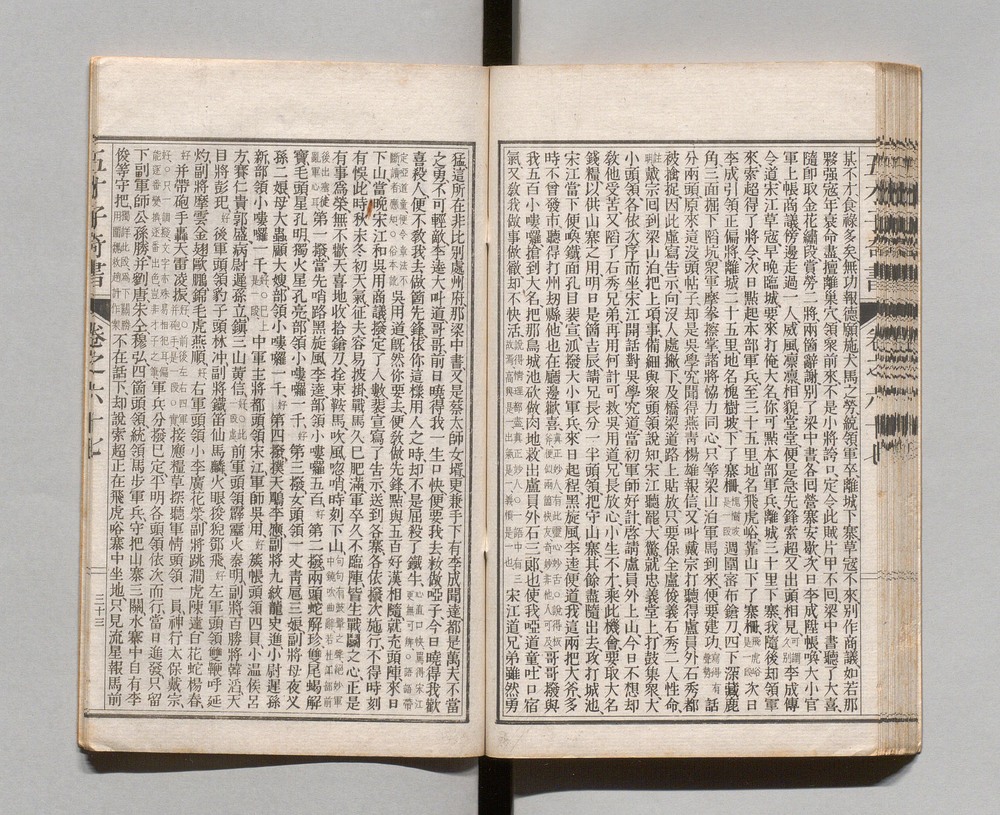 某不才食祿多矣無功報德願施犬馬之勞統領軍卒離城下寨草寇不來別作商議如若那
夥强寇年衰命盡擅離巢穴領衆前來不是小將誇口定令此賊片甲不回梁中書聽了大喜
隨卽取金花繡段賞勞二將兩箇辭謝別了梁中書各回營寨安歇次日李成陞帳喚大小官
軍上帳商議傍邊走過一人威風凛凛相貌堂堂便是急先鋒索超又出頭相見可謂久別李成傳
令道宋江草寇早晚臨城要來打俺大名你可點本部軍兵離城三十里下寨我隨後却領軍
來索超得了將令次日點起本部軍兵至三十五里地名飛虎峪靠山下了寨柵飛虎峪是一段次日
李成引領正偏將離城二十五里地名槐樹坡下了寨柵槐樹坡是一段週圍密布鎗刀四下深藏鹿
角三面掘下陷坑衆軍摩拳擦掌諸將協力同心只等梁山泊軍馬到來便要建功寫得有聲勢話
分兩頭原來這沒頭帖子却是吳學究聞得燕青楊雄報信又叫戴宗打聽得盧員外石秀都
被擒捉因此虛寫告示向沒人處撇下及橋梁道路上貼放只要保全盧俊義石秀二人性命
註明戴宗回到梁山泊把上項事備細與衆頭領說知宋江聽罷大驚就忠義堂上打鼓集衆大
小頭領各依次序而坐宋江開話對吳學究道當初軍師好計啓請盧員外上山今日不想却
他受苦又陷了石秀兄弟再用何計可救吳用道兄長放心小生不才乘此機會要取大名
錢糧以供山寨之用明日是箇吉辰請兄長分一半頭領把守山寨其餘盡隨出去攻打城池
宋江當下便喚鐵面孔目裴宣派撥大小軍兵來日起程黑旋風李逵便道我這兩把大斧多
時不曾發市聽得打州刼縣他也在廳邊歡喜哥哥撥與
我五百小嘍囉搶到大名把那鳥城池砍做肉地救出盧員外石三郎也使我啞道童吐口宿
氣又敎我做事做徹却不快活宋江道兄弟雖然勇
猛這所在非比別處州府那梁中書又是蔡太師女壻更兼手下有李成聞達都是萬夫不當
之勇不可輕敵李逵大叫道哥哥前日曉得我一生口快便要我去粧做啞子今日曉得我歡
喜殺人便不敎我去做箇先鋒依你這樣用人之時却不是屈殺了鐵牛
吳用道旣然你要去便敎做先鋒點與五百好漢相隨就充頭陣來日
下山當晩宋江和吳用商議撥定了人數裴宣寫了告示送到各寨各依撥次施行不得時刻
有悞此時秋末冬初天氣征夫容易披掛戰馬久已肥滿軍卒久不臨陣皆生戰鬭之心正是
有事爲榮無不歡天喜地收拾鎗刀拴束鞍馬吹風唿哨時刻下山
第一撥當先哨路黑旋風李逵部領小嘍囉五百好第二撥兩頭蛇解珍雙尾蝎解
寶毛頭星孔明獨火星孔亮部領小嘍囉一千好第三撥女頭領一丈靑扈三娘副將母夜叉
孫二娘母大蟲顧大嫂部領小嘍囉一千好第四撥撲天鵰李應副將九紋龍史進小尉遲孫
新部領小嘍囉一千中軍主將都頭領宋江軍師吳用好簇帳頭領四員小温侯呂
方賽仁貴郭盛病尉遲孫立鎮三山黃信前軍頭領霹靂火秦明副將百勝將韓滔天
目將彭玘好後軍頭領豹子頭林冲副將鐵笛仙馬麟火眼狻猊鄧飛好左軍頭領雙鞭呼延
灼副將摩雲金翅歐鵬錦毛虎燕順好右軍頭領小李廣花榮副將跳澗虎陳達白花蛇楊春
好并帶砲手轟天雷凌振好接應糧草探聽軍情頭領一員神行太保戴宗
軍兵分撥已定平明各頭領依次而行當日進發只留
下副軍師公孫勝并劉唐朱仝穆弘四箇頭領統領馬步軍兵守把山寨三關水寨中自有李
俊等守把不在話下却說索超正在飛虎峪寨中坐地只見流星報馬前
五才子奇書
卷之六十七
三十三